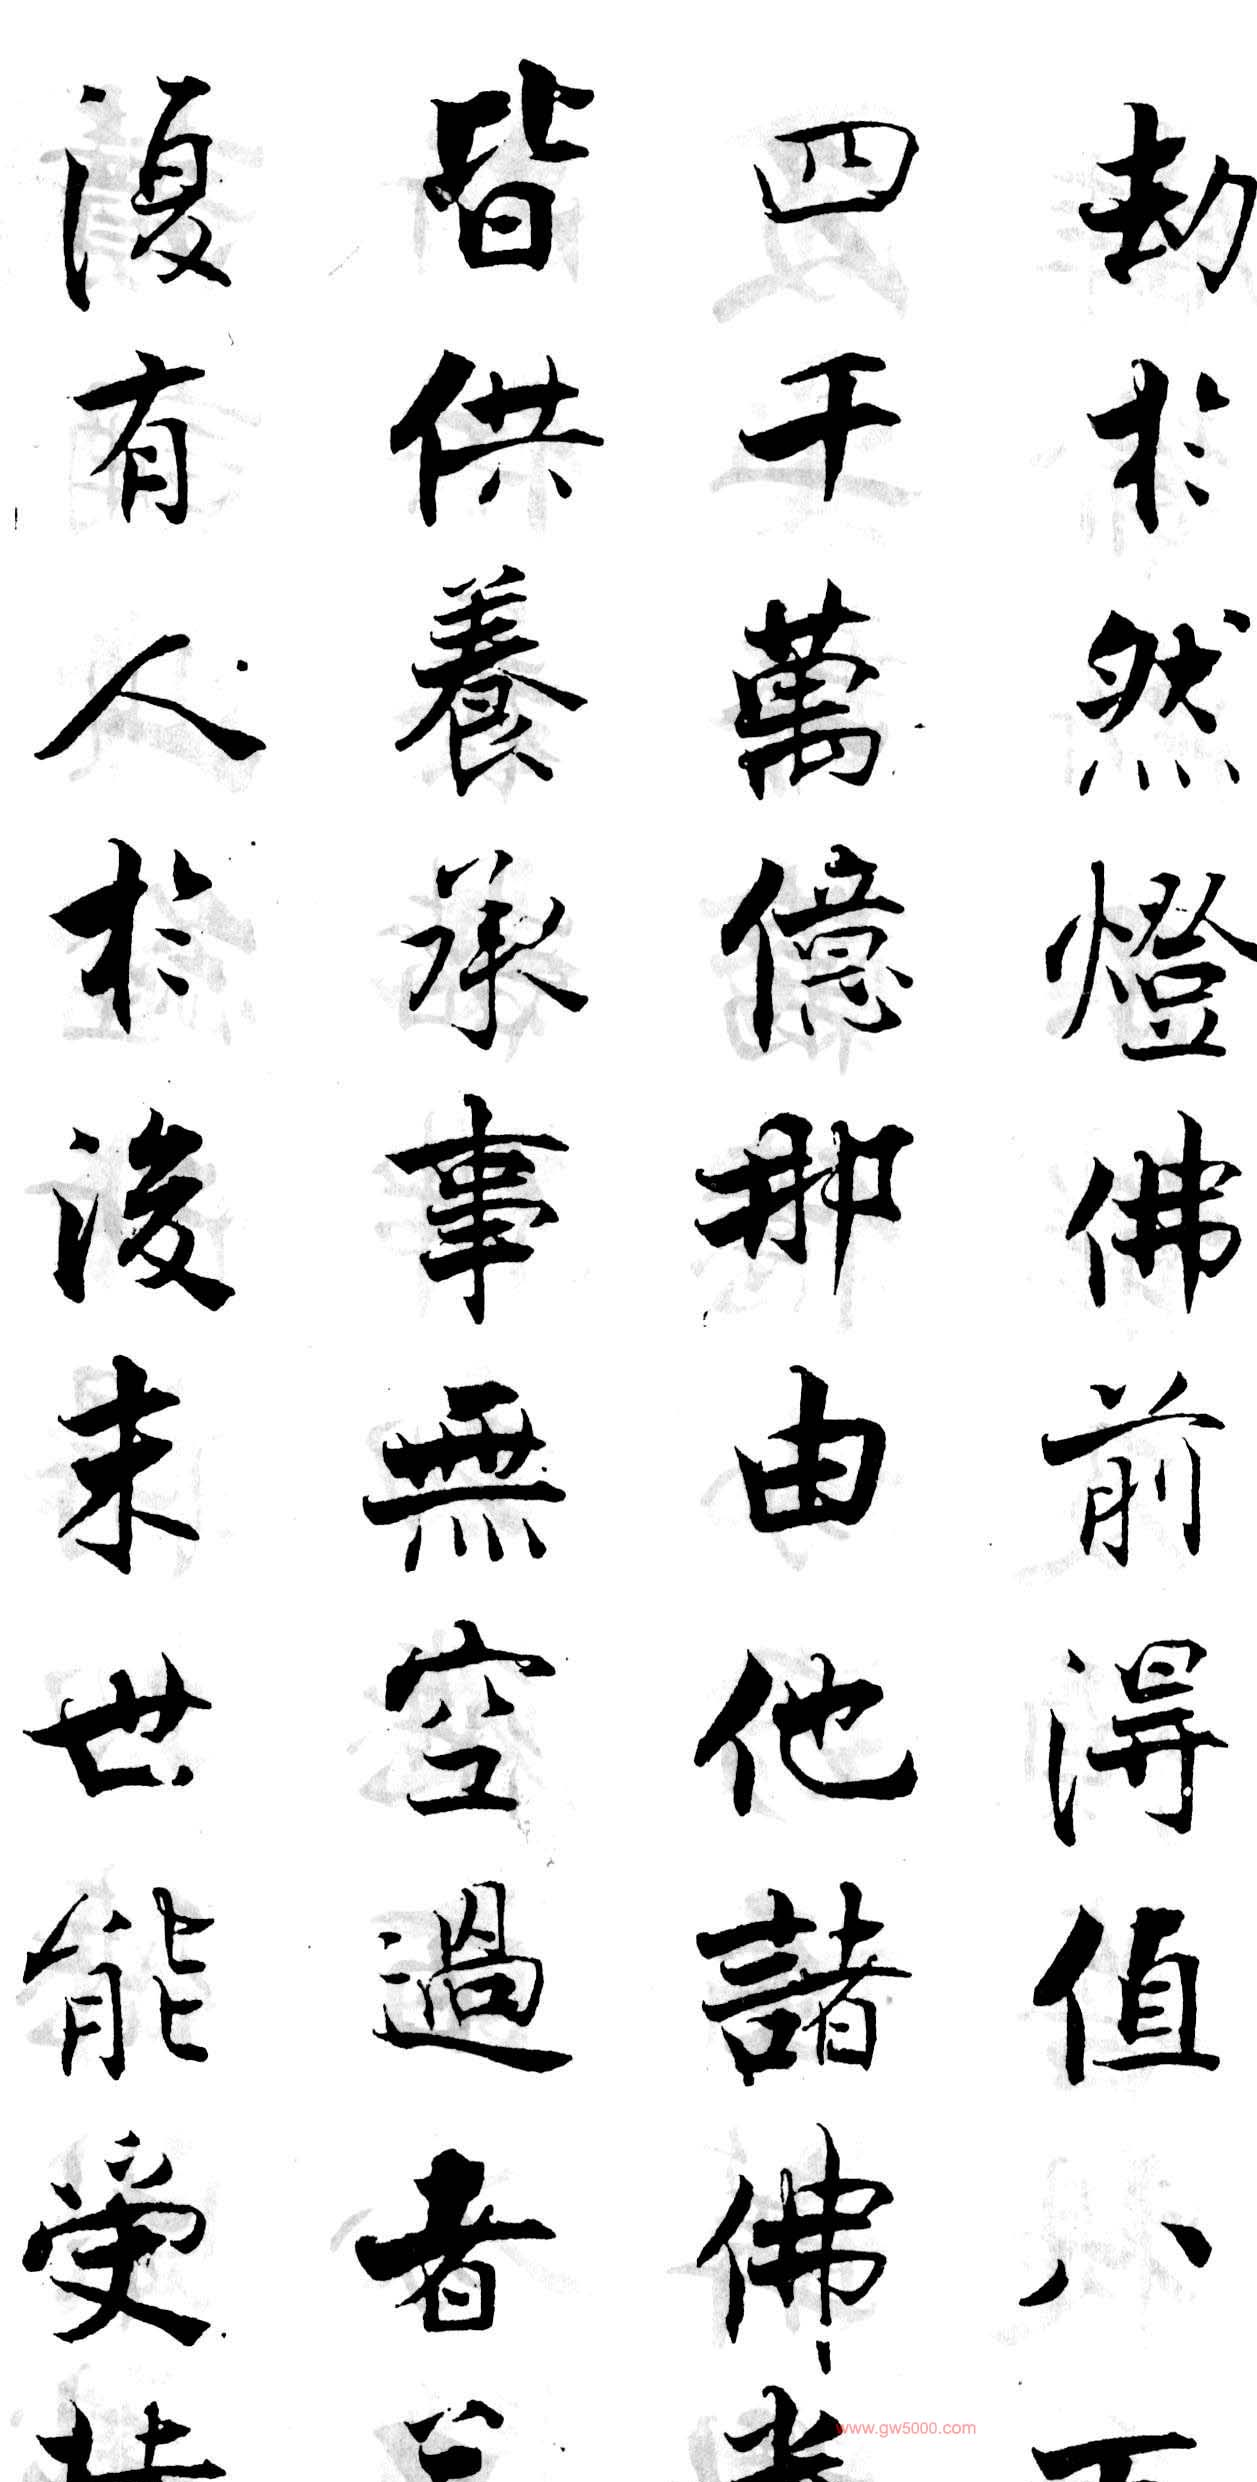 劫於然燈佛前得值八
四千萬億那由他諸佛
皆供養承事無空過者
復有人於後末世能受
www.gw5000.com